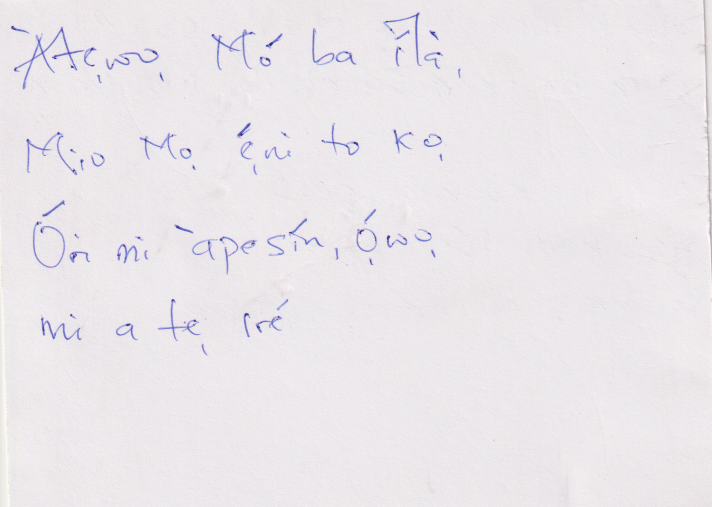 Àtẹwọ Mó ba ílà,
Mịo Mọ ẹ́ni to kọ
Órí mi àpesín, Ọ́wọ
mi a tẹ iré